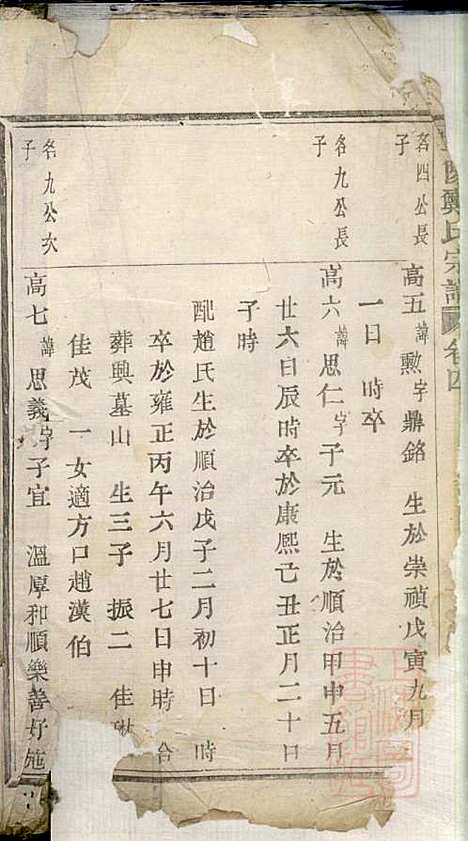 鄭氏宗譜 卷四
名四公長子
高五 諱勳字鼎銘 生於崇禎戊寅九月
一日 時卒
名九公長子
高六 諱思仁字子元 生於順治甲申五月
廿六日辰時卒於康熙己丑正月二十日
子時
配趙氏生於順治戊子二月初十日 時
卒於雍正丙午六月廿七日申時 合
葬興墓山 生三子 振二 佳琳
佳茂 一女適方口趙漢伯
名九公次子
高七 諱思義字子宜 溫厚和順樂善好施